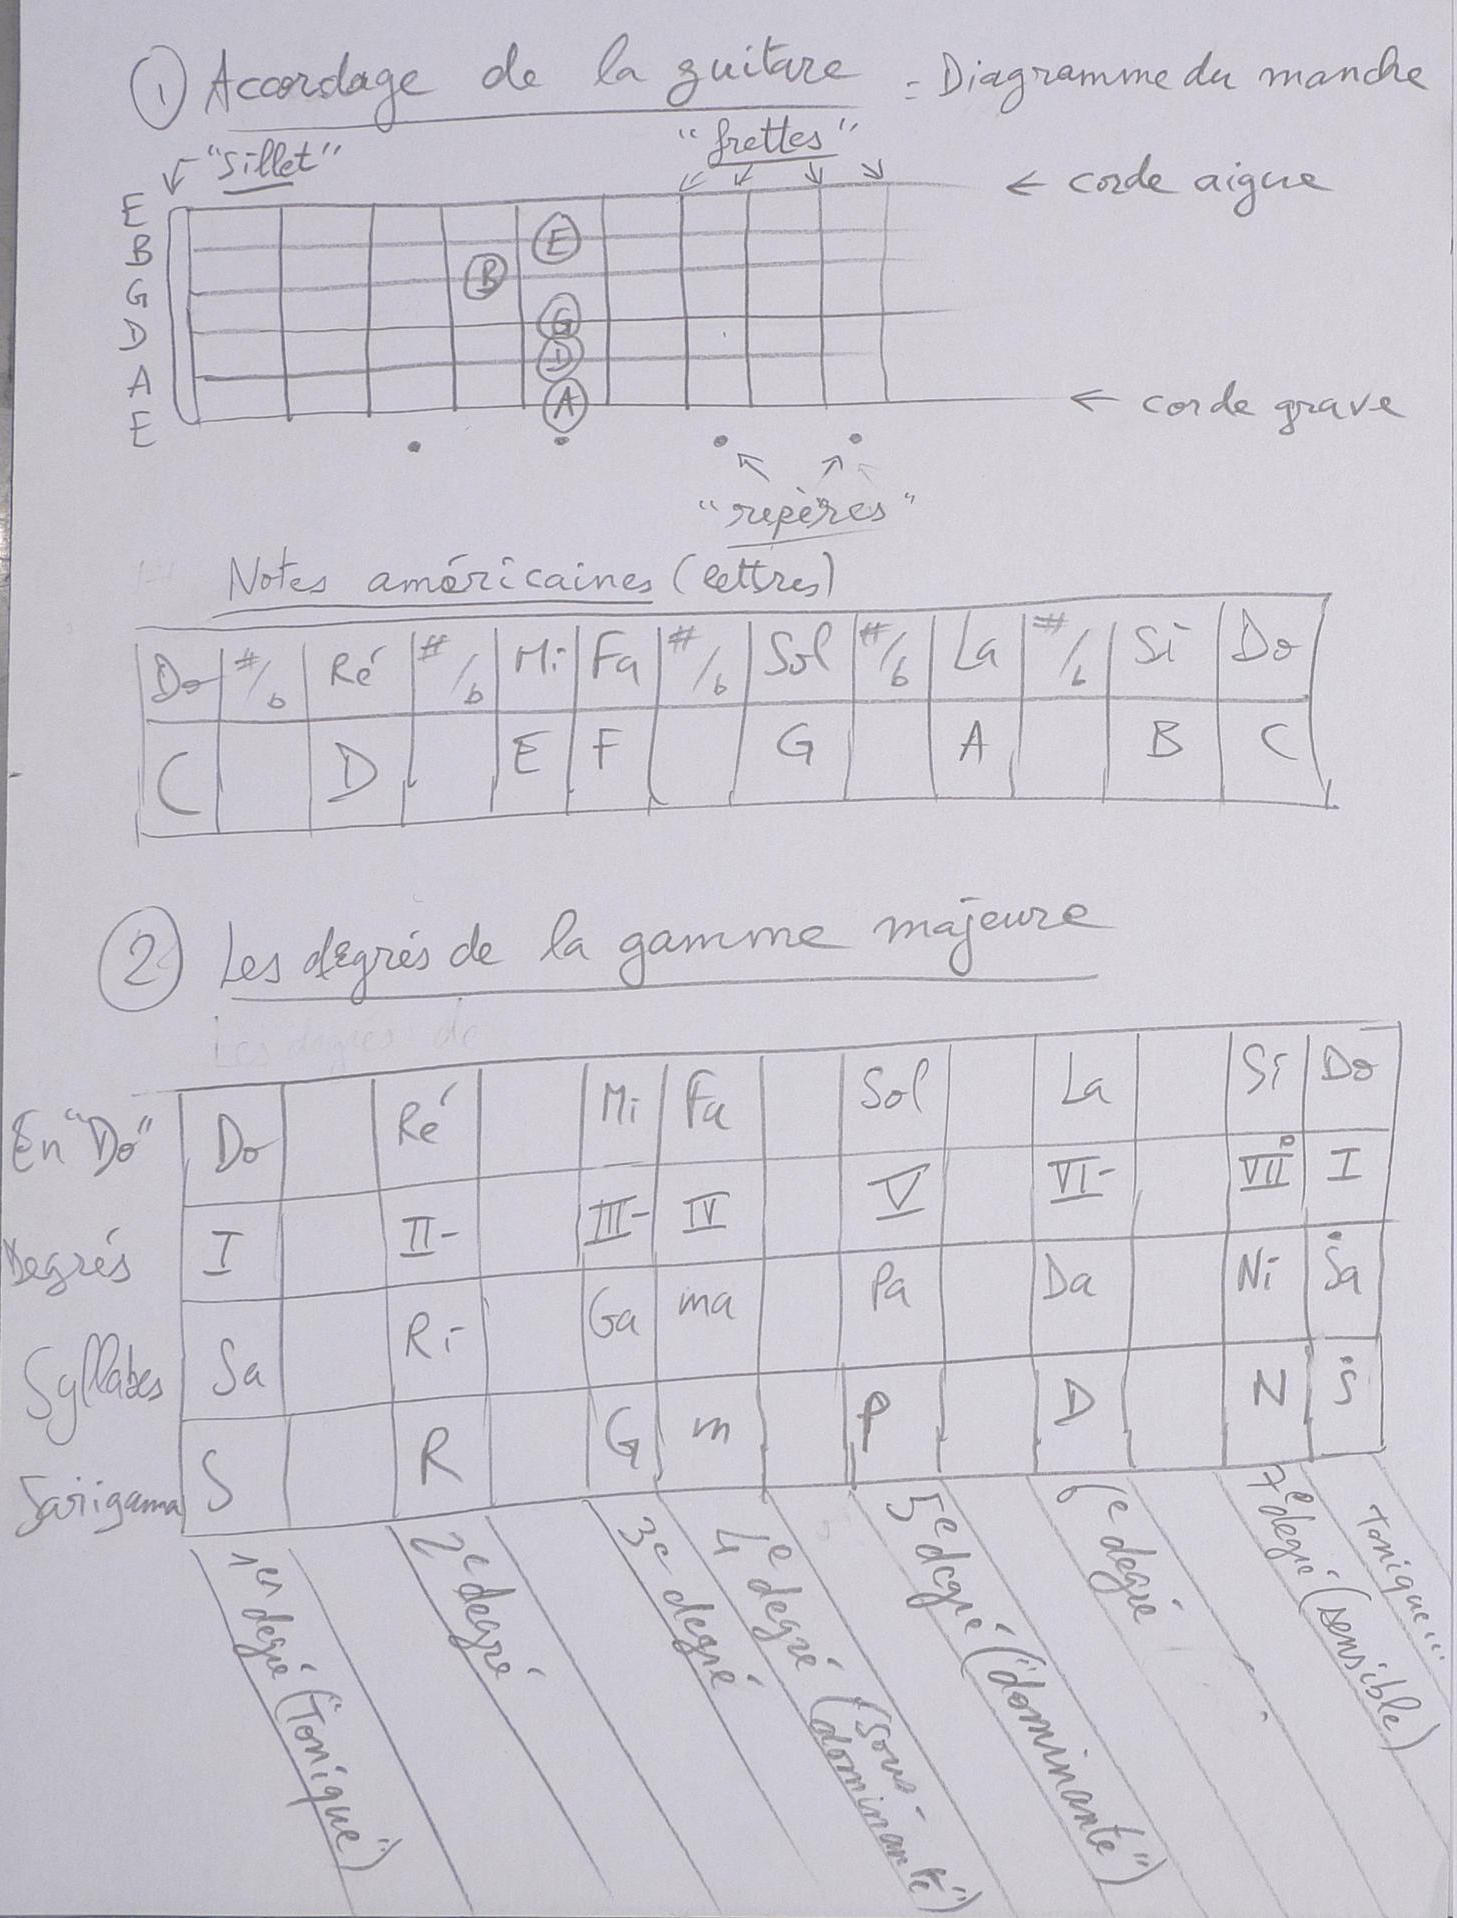 ① Accordage de la guitare = Diagramme du manche
"Sillet" "frettes"
E ← corde aigue
B E
G B
D G
A D
E A ← corde grave
"repères"
Notes américaines (lettres)
Do #/b Ré #/b Mi Fa #/b Sol #/b La #/b Si Do
C D E F G A B C
② Les degrés de la gamme majeure
Les degrés de
En "Do" Do Ré Mi Fa Sol La Si Do
Degrés I II- III- IV V VI- VII° I
Syllabes Sa Ri Ga ma Pa Da Ni Ṡa
Sarigama S R G m P D N Ṡ
1er degré ("Tonique")
2e degré
3e degré
4e degré ("sous-
dominante")
5e degré ("dominante")
6e degré
7e degré (sensible)
tonique...